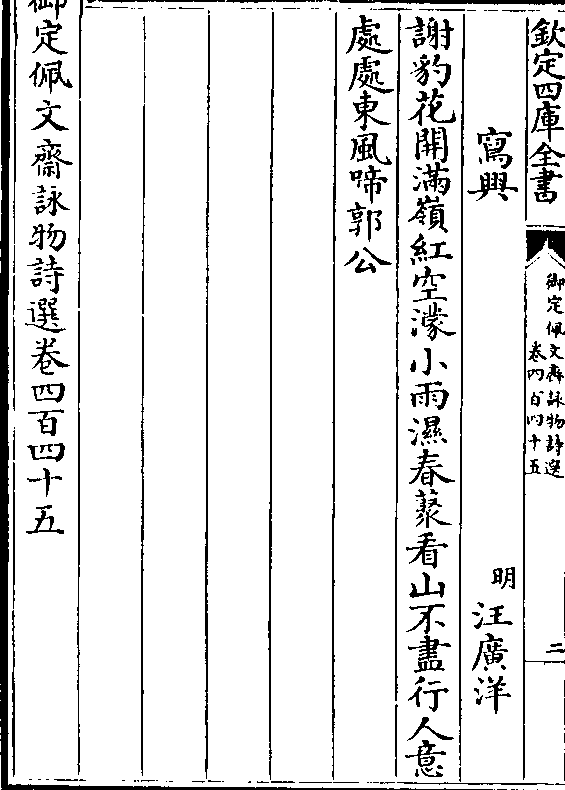 欽定四庫全書
御定佩文齋詠物詩選
卷四百四十五
二
寓興
明 汪廣洋
謝豹花開滿嶺紅空濛小雨濕春蓌看山不盡行人意
處處東風啼郭公
御定佩文齋詠物詩選卷四百四十五